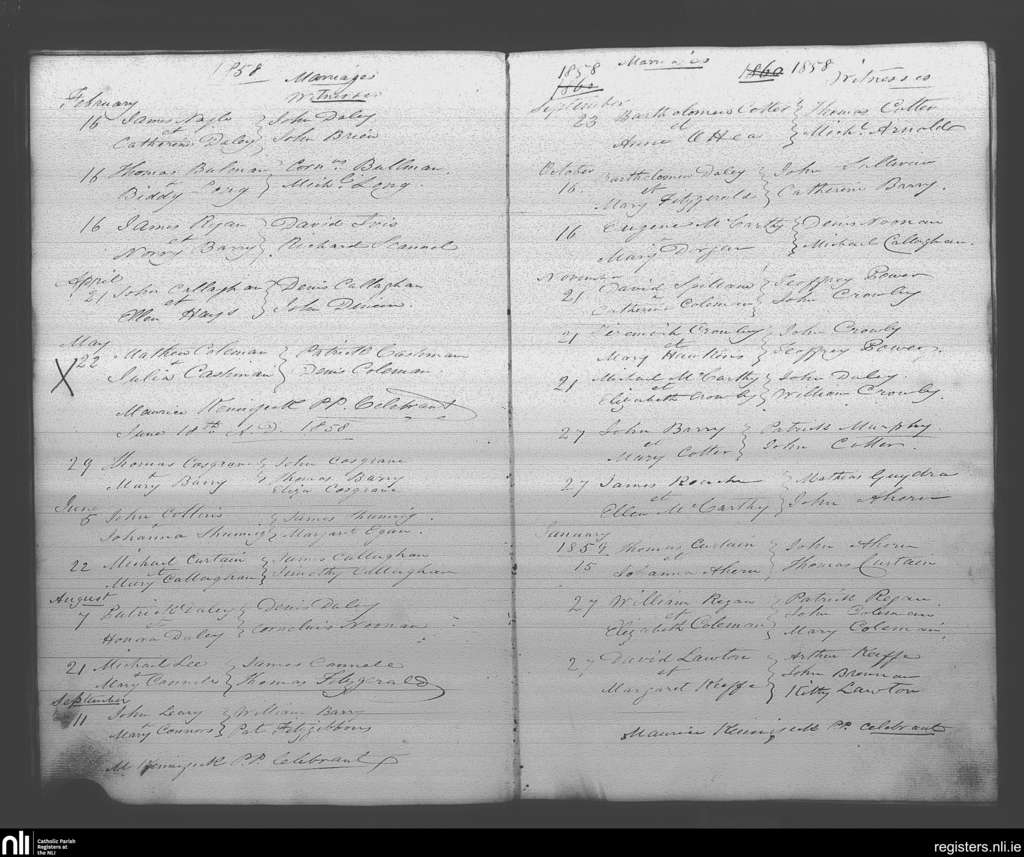 1858
Marriages
Witnesses
February
16 James Nagle John Daly
et
Catherine Daley John Brien
16 Thomas Bulman Corns Bullman
et
Biddy Long Michl Long.
16 James Ryan David
et
Norry Barry Richard Scannel
April
21 John Callaghan Denis Callaghan
et
Ellen Hays John Dineen.
May
X 22 Mathew Coleman Patrick Cashman
et
Julia Cashman Denis Coleman.
Maurice PP. Celebrant
June 18th A.D. 1858
29 Thomas Cosgrave John Cosgrave
et Thomas Barry
Mary Barry Eliza Cosgrave
June
5 John Collins James
Johanna Margaret Egan.
22 Michael Curtain James Callaghan
et
Mary Callaghan Timothy Callaghan
August
7 Patrick Daley Denis Daley
et
Honora Daley Cornelius Noonan
21 Michael Lee James
et
Mary Thomas Fitzgerald
September
11 John Leary William Barry
et
Mary Connors Pat Fitzgibbons
M P.P. Celebrant
1858 Marriages 1860 1858 Witnesses
1860
September
23 Bartholomew Cotter Thomas Cotter
et
Anne O Hea Michl Arnold
October
16. Bartholomew Daley John Sullivan
et
Mary Fitzgerald Catherine Barry.
16 Eugene McCarthy Denis Noonan
et
Mary Michael Callaghan.
November
21 David Jeoffrey Power
et
Catherine Coleman John Crowley
21 Jeremiah Crowley John Crowly
et
Mary Hawkins Jeoffrey Power.
21 Michael McCarthy John Daley.
et
Elizabeth Crowley William Crowley.
27 John Barry Patrick Murphy.
et
Mary Cotter John Cotter
27 James Roche Mathias
et
Ellen McCarthy John Ahern
January
1859 Thomas Curtain John Ahern
15 et
Johanna Ahern Thomas Curtain
27 William Regan Patrick Regan
et John Coleman
Elizabeth Coleman Mary Coleman.
27 David Lawton Arthur Keiffe
et John Brennan
Margaret Keiffe Kitty Lawton
Maurice PP. Celebrant
nli Catholic Parish
Registers at
the NLI
registers.nli.ie